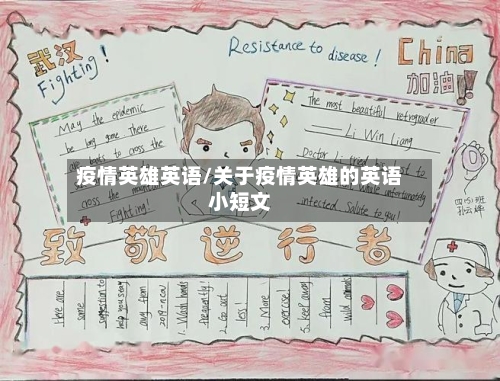 武汉
Fighting!
Resistance to disease!
China
加油!!
May the epidemic
be long gone. There
are boats to cross the
cross the mountain
Fighting!
The most beautiful retrograder
—— Li Win Liang
Doctor Li tried his best to
While unfortunately
infected. Salute to you!
疫情英雄英语/关于疫情英雄的英语
小短文
致敬逆行者
Here are
some
suggestion to
help you stay
away from
2019-nCoV
1. Wash hands
frequently!
2. Go out
less!
3. More
exercise!
5. keep away
from
wild animals